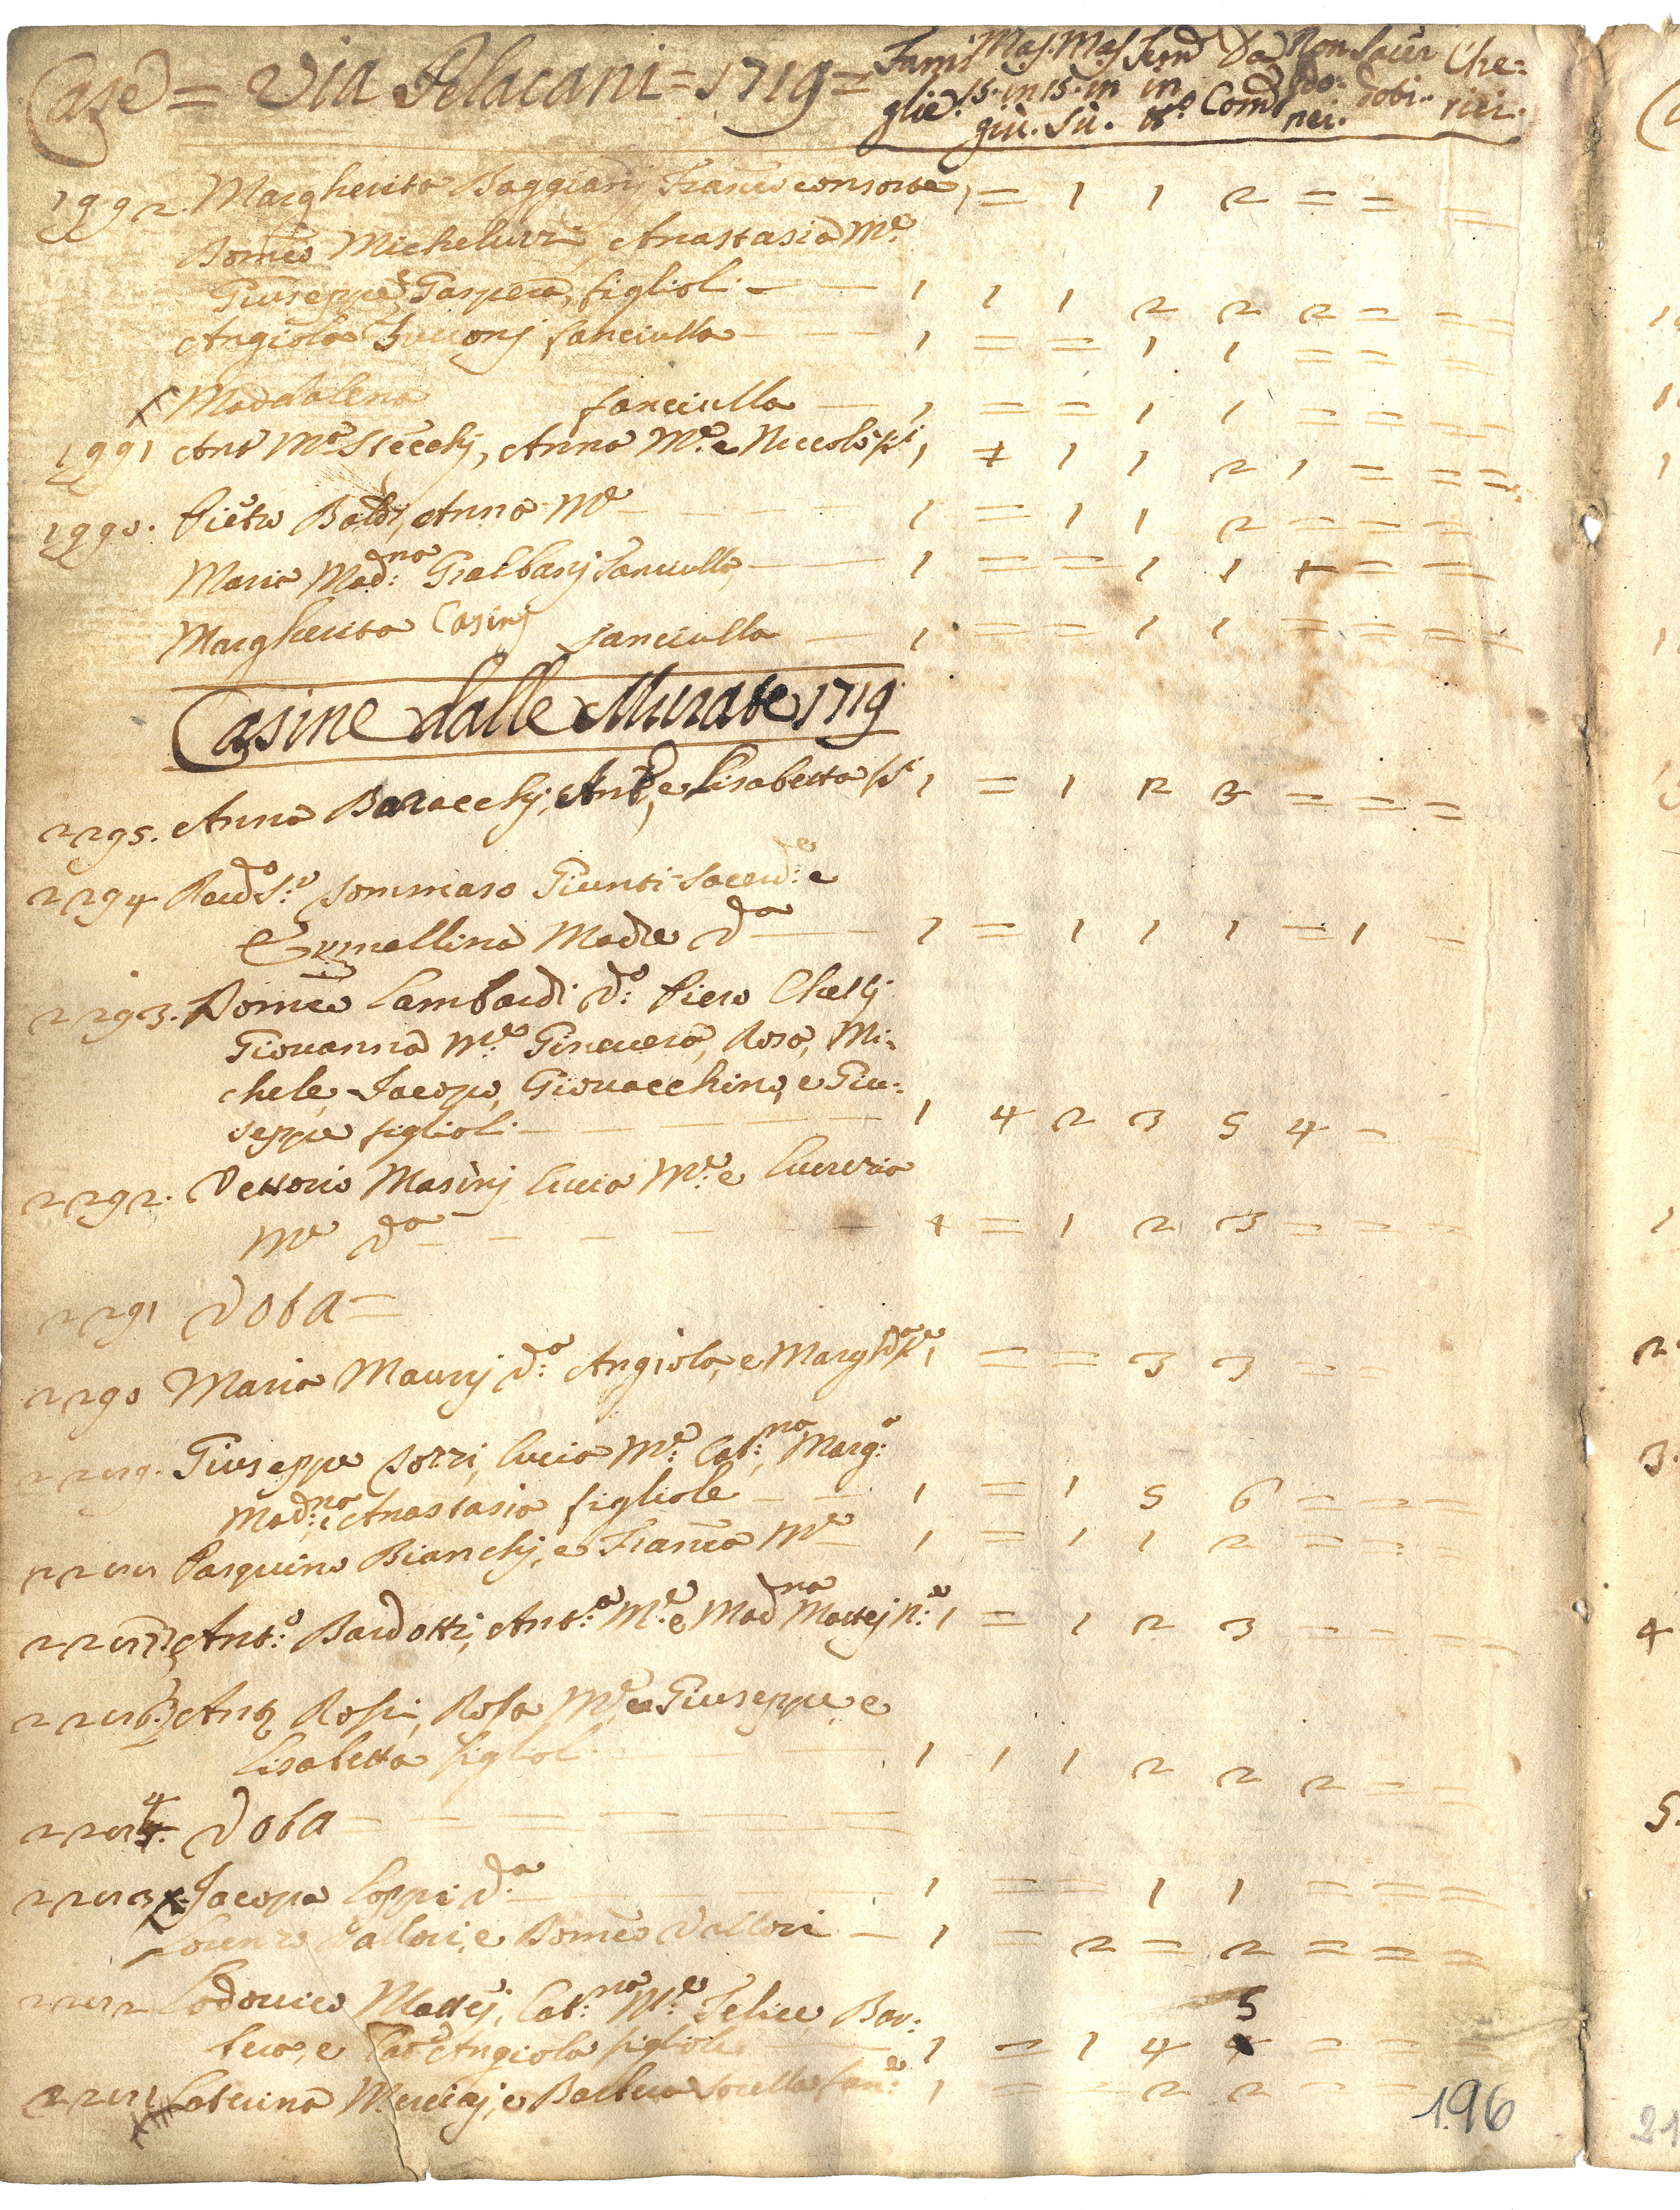 Case = Via Pelacani = 1719 = Fami glie. Mas. 15. in giù. Mas 15. in sù. Fem in tt.o Da Com.e Non ido: nei. Sacer doti. Che: rici.
1992. Margherita Baggianj Franc.o consorte 1 = 1 1 2 = = =
Dom.co Micheluzzi, Anastasia M.e
Giuseppe, e Gaspera, figlioli — — 1 1 1 2 2 2 = = =
Angiola fanciulla — — 1 = = 1 1 = = =
Maddalena fanciulla — 1 = = 1 1 = = =
1991 Ant.o M.a Stecchj, Anna M.e e Niccolò 1 = 1 1 2 1 = = =
1990. Pietro Baldi, Anna M.e — 1 = 1 1 2 = = = =
Maria Mad:na Galbanj fanciulla — 1 = = 1 1 = = =
Margherita Casinj fanciulla — 1 = = 1 1 = = = =
Casine dalle Murate 1719
2295. Anna Baracchj, Ant.o, e Lisabetta 1 = 1 2 3 = = =
2294 Reud.o S.r Tommaso Giunti Sacerd:e e
Ermellina Madre V.a — — 1 = 1 1 1 = 1 =
2293. Dom.co Lambardi V:o Piero Chellj
Giovanna M.e Ginevera, Rosa, Mi-
chele, Jacopo, Giovacchino, e Giu:
seppe figlioli — — 1 4 2 3 5 4 — —
2292. Vettorio Masinj Lucia M:e e Lucrezia
M.e V.a — — — — 1 = 1 2 3 = = =
2291 Vota =
2290 Maria Maurj V:a Angiola, e Marg 1 = = 3 3 =
2289. Giuseppe Pozzi, Lucia M:e Cat:na, Marg:a
Mad:na, e Anastasia figliole — — 1 = 1 5 6 = = =
2288 Pasquino Bianchj, e Fran.ca M.e — 1 = 1 1 2 = = =
2287 Ant:o Bardotti, Ant:a M:e e Mad.na Mattej 1 = 1 2 3 = = = =
2286 Ant.o Rossi, Rosa M.e e Giuseppe e
Lisabetta figlioli — — 1 1 1 2 2 2 = =
2284 Vota = — — — — —
2283 Jacopa Coppi V.a — — 1 = = 1 1 = = =
Lorenzo Vallori, e Dom.co Vallori — 1 = 2 = 2 = = =
2282 Lodovico Mattej, Cat:na M:e Felice, Bar:
tera, e Angiola figlioli — 1 = 1 4 5 = = =
2281 Caterina e Barbera Sorella fan:e 1 = = 2 2 = =
196